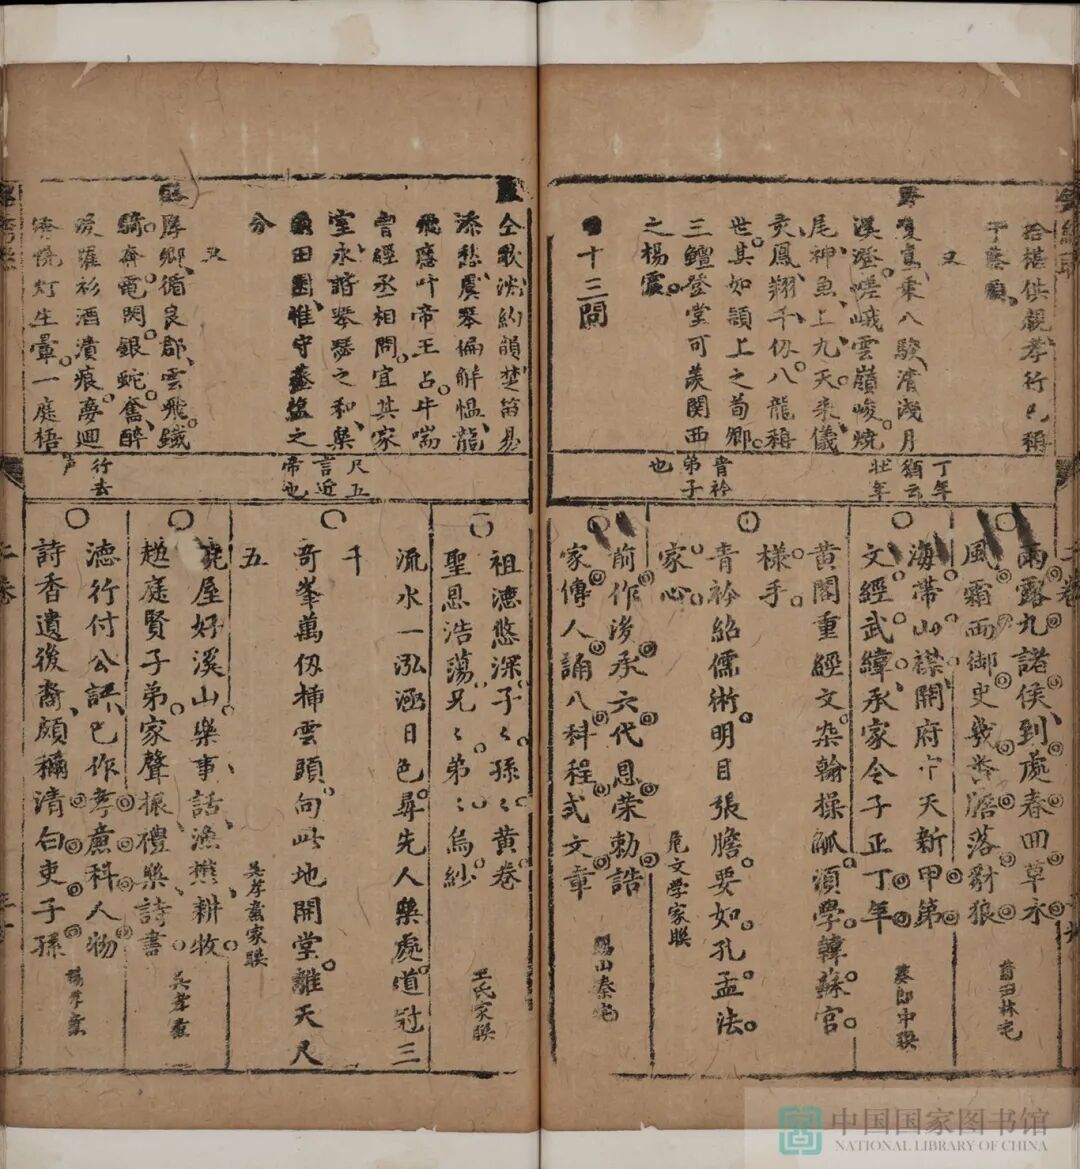 拾椹供親孝行已稱
于蔡順
又
雙鳧乘八駿清淺月
溪登嵯峨雲嶺峻燒
尾神魚上九天來儀
彩鳳翔千仞八龍稱
世其如頴上之荀卿
三鱣登堂可羨関西
之楊震
十三関
仝歌沈約韻楚笛易
添愁虞琴偏解愠龍
飛應叶帝王占牛喘
曾經丞相問宜其家
室永諧琴瑟之和樂
田園惟守虀鹽之
分
又
厚鄉循良郡雲飛鐵
騎奔電閃銀蛇奮醉
後羅衫酒潰痕夢迴
灯生暈一庭梧
丁年
猶云
壯年
青衿
弟子
也
尺五
言近
帝也
行去
声
雨露九諸侯到處春回草木
風霜兩御史戰兢膽落豺狼
莆田林宅
海帶山襟開府中天新甲第
文經武緯承家令子正丁年
郎中聯
黃閣重經文染翰操觚須學韓蘇官
樣手
青衿紹儒術明目張膽要如孔孟法
家心
危文學家聯
前作後承六代恩榮勅誥
家傳人誦八科程式文章
山秦宅
祖德悠深子〻孫〻黃卷
聖恩浩蕩兄〻弟〻烏紗
王氏家聯
流水一泓涵日色尋先人樂處道冠三
千
奇峯萬仞揷雲頭向此地開堂離天尺
五
吳孝廉家聯
屋好溪山樂事話漁樵耕牧
趨庭賢子弟家聲振禮樂詩書
吳孝廉
德行付公評已作孝廉科人物
詩香遺後裔頗稱清白吏子孫
楊孝廉
上卷